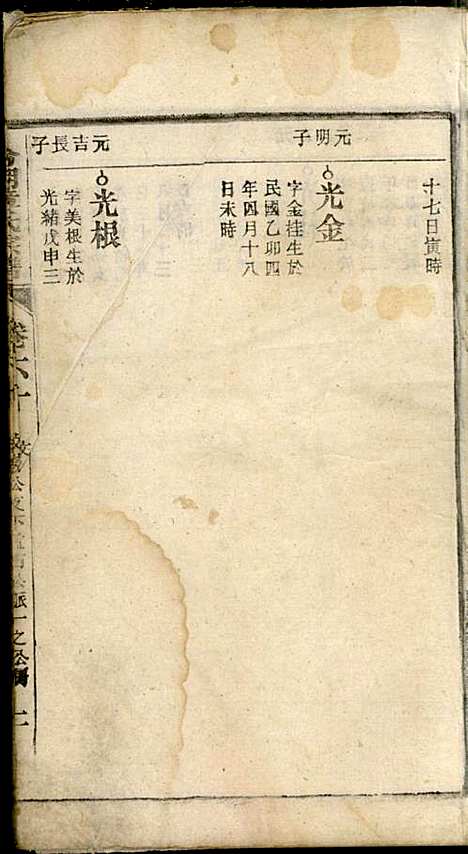 十七日寅時
元明子
光金
字金桂生於
民國乙卯四
年四月十八
日未時
元吉長子
光根
字美根生於
光緒戊申三
氏宗譜
卷六十